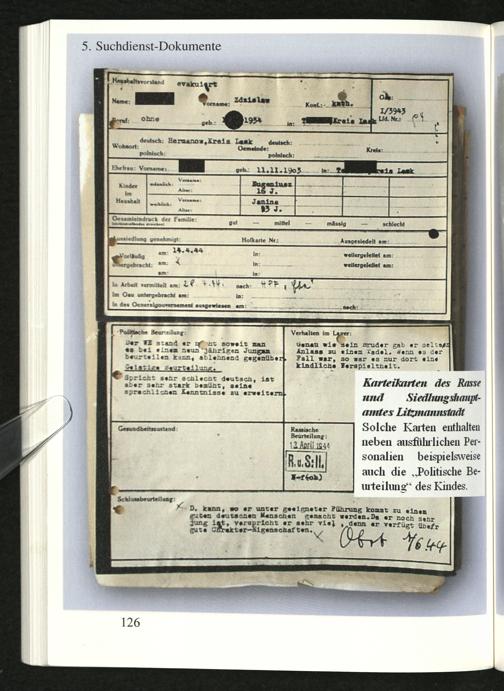 5. Suchdienst-Dokumente
Haushaltsvorstand evakuiert
Name: Vorname: Zdzislaw Konf.: kath. Gau:
I/3943
Beruf: ohne geb.: 1934 in: Kreis Lask Lfd. Nr.:
Wohnort: deutsch: Hermanow, Kreis Lask deutsch:
polnisch: Gemeinde: polnisch: Kreis:
Ehefrau: Vorname: geb.: 11.11.1903 in: Kreis Lask
Kinder im Haushalt
männlich: Vorname: Eugeniusz
Alter: 16 J.
weiblich: Vorname: Janina
Alter: 13 J.
Gesamteindruck der Familie: gut — mittel — mässig — schlecht
Aussiedlung genehmigt: Hofkarte Nr.: Ausgesiedelt am:
Vorläufig am: 14.4.44 in: weitergeleitet am:
untergebracht: am: in: weitergeleitet am:
am: in:
In Arbeit vermittelt am: nach:
Im Gau untergebracht am: in:
In das Generalgouvernement ausgewiesen am: nach:
Politische Beurteilung:
Der VE stand er nicht soweit man
es bei einem neunjährigen Jungen
beurteilen kann, ablehnend gegenüber.
Geistige Beurteilung.
Spricht sehr schlecht deutsch, ist
aber sehr stark bemüht, seine
sprachlichen Kenntnisse zu erweitern.
Verhalten im Lager:
Genau wie sein Bruder gab er selten
Anlass zu einem Tadel. Wenn es der
Fall war, so war es nur dort eine
kindliche Verspieltheit.
Gesundheitszustand:
Rassische
Beurteilung:
12. April 1944
R.u.S:II.
Schlussbeurteilung:
D. kann, so er unter geeigneter Führung kommt zu einen
guten deutschen Menschen gemacht werden. Da er noch sehr
jung ist, verspricht er sehr viel, denn er verfügt über
gute Charakter-Eigenschaften.
Karteikarten des Rasse
und Siedlungshaupt-
amtes Litzmannstadt
Solche Karten enthalten
neben ausführlichen Per-
sonalien beispielsweise
auch die „Politische Be-
urteilung“ des Kindes.
126